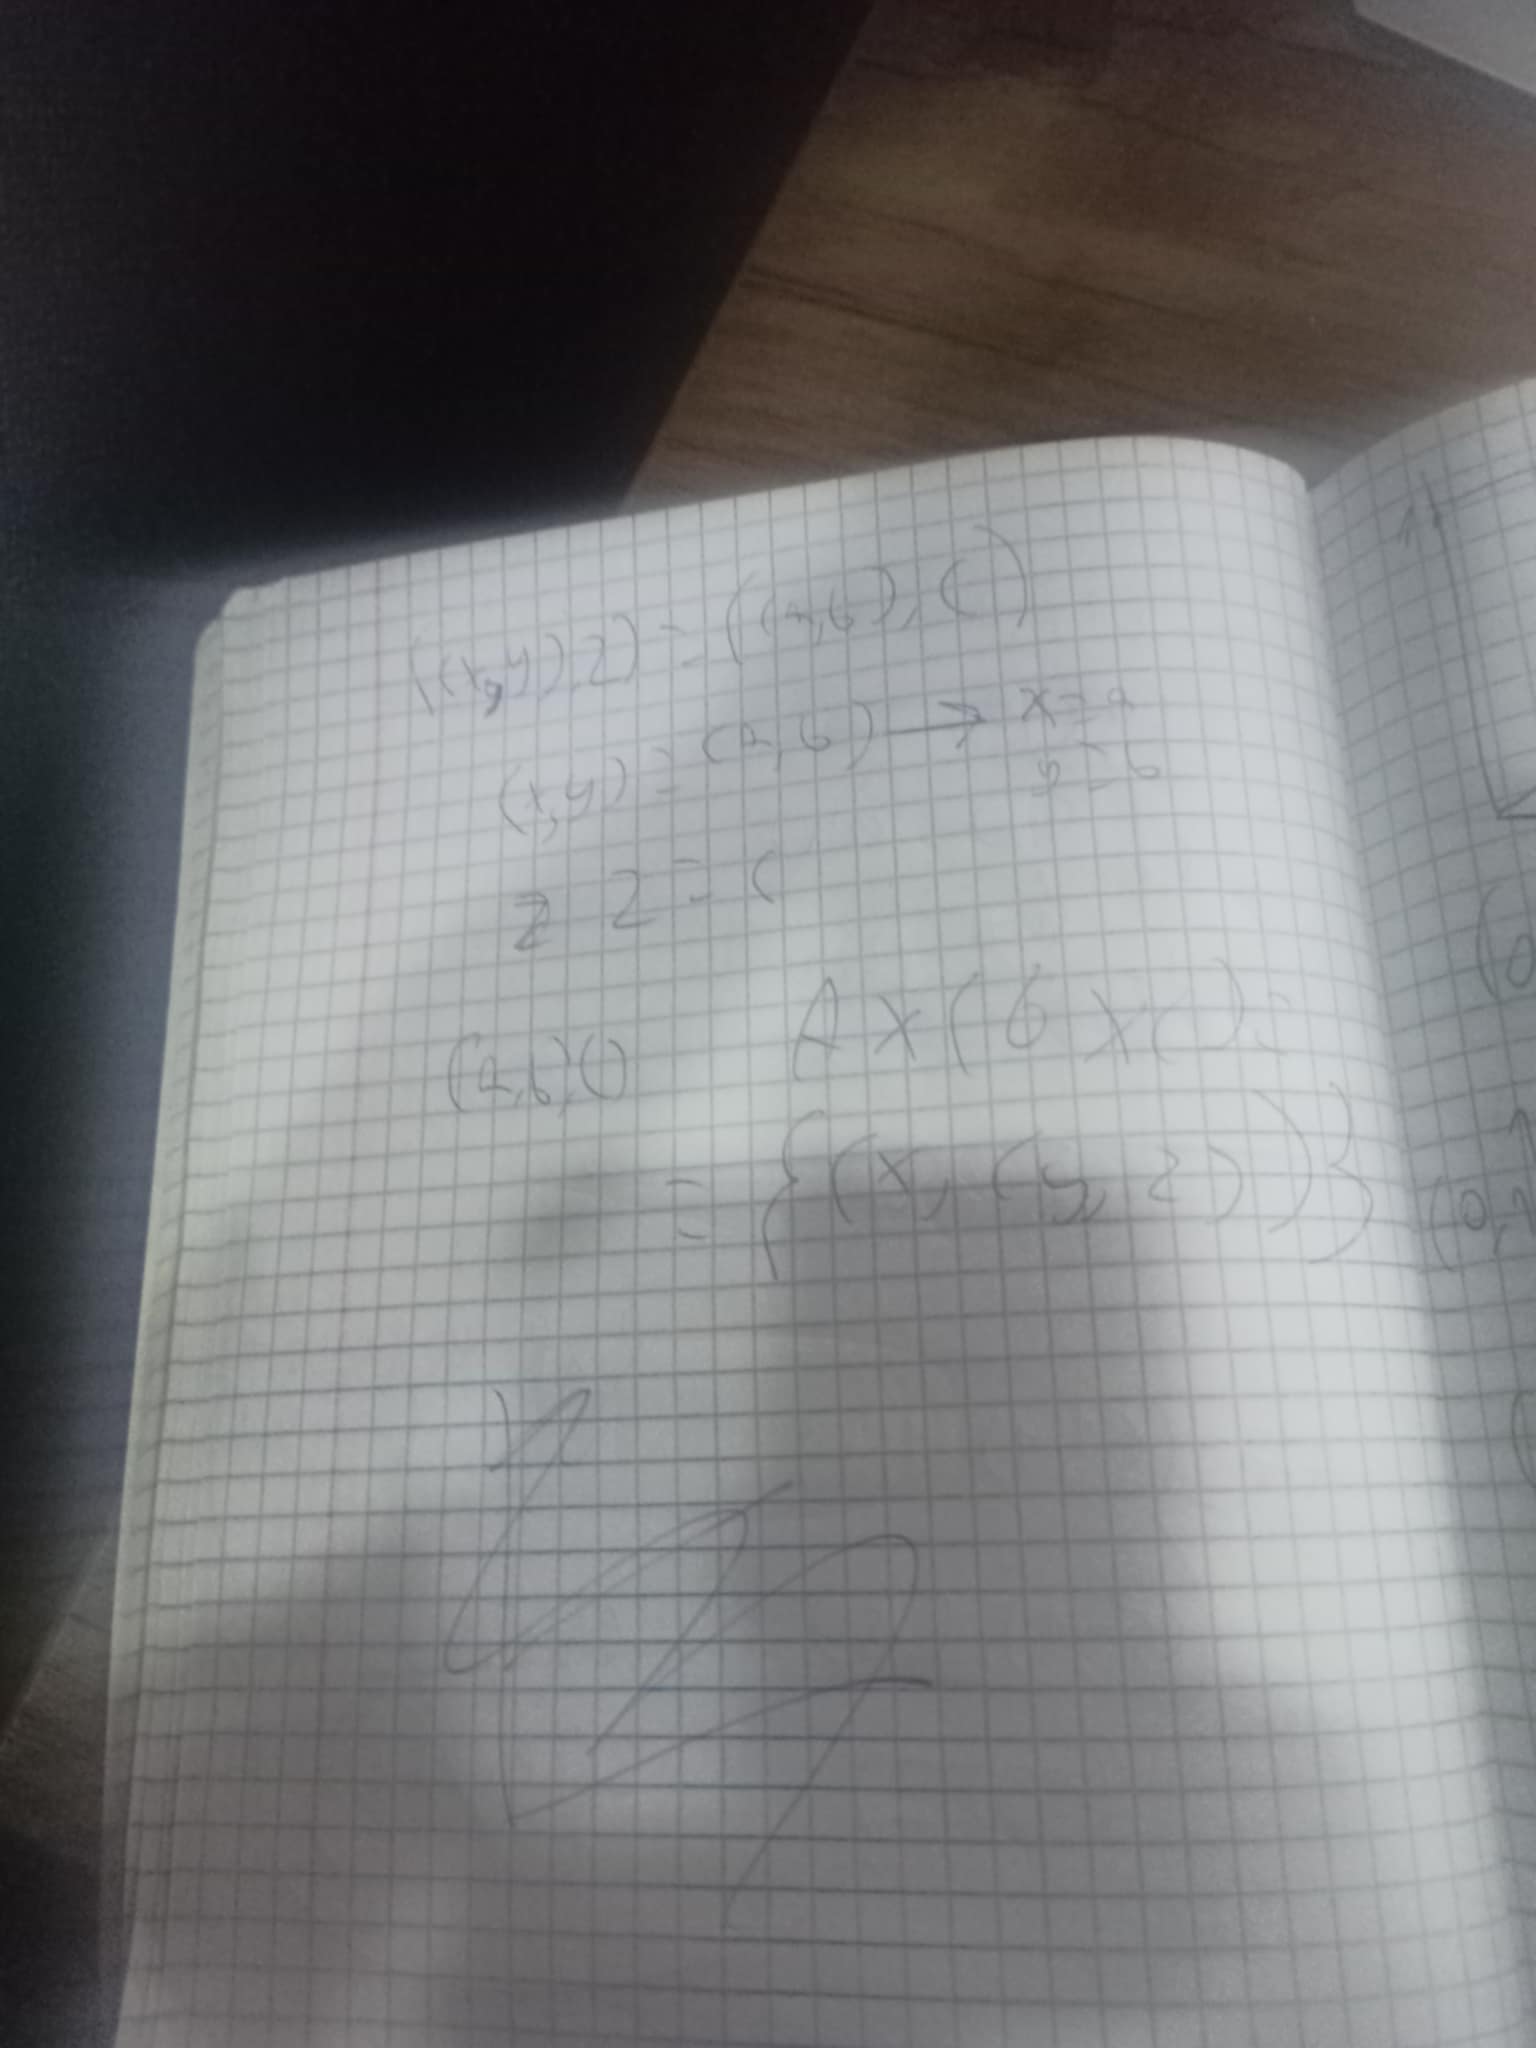 ((x,y),z) = ((a,b),c)
(x,y) = (a,b) → x=a
y=b
z z = c
(a,b),c)
A x (b x c) =
= {(x, (y, z))}
(0,